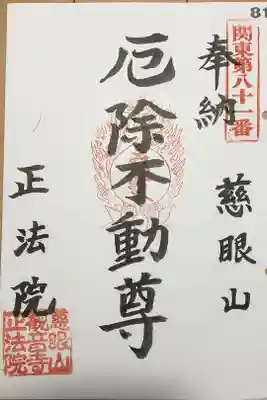 81
関東第八十一番
奉納
慈眼山
厄除不動尊
正法院
慈眼山
観音寺
正法院